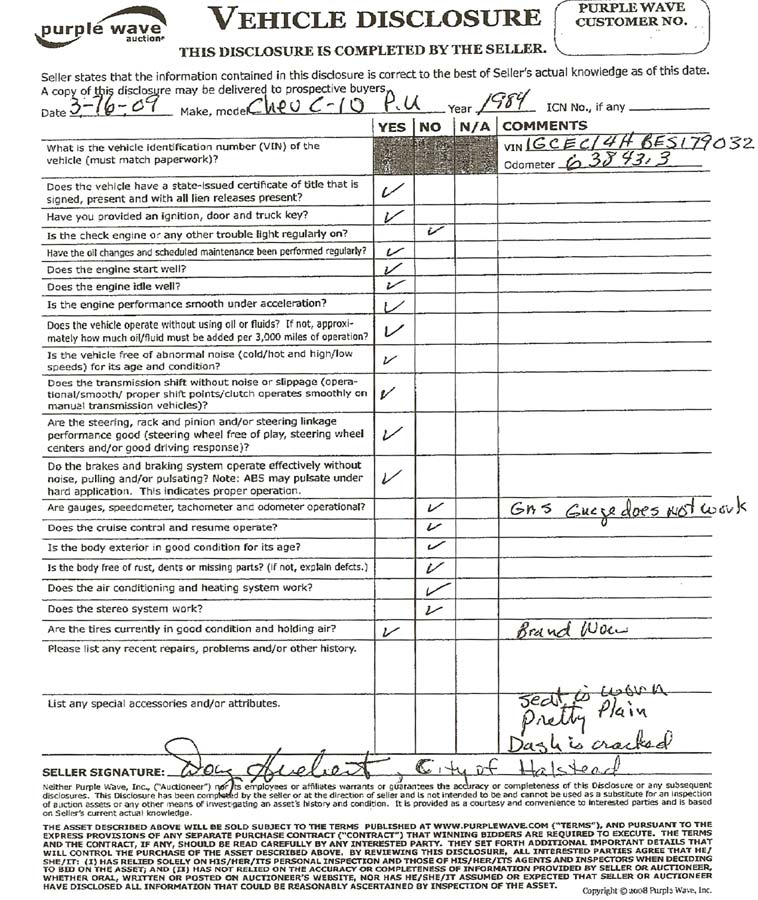 purple wave
auction®
VEHICLE DISCLOSURE
PURPLE WAVE
CUSTOMER NO.
THIS DISCLOSURE IS COMPLETED BY THE SELLER.
Seller states that the information contained in this disclosure is correct to the best of Seller's actual knowledge as of this date.
A copy of this disclosure may be delivered to prospective buyers.
Date 3-16-09 Make, model Chev C-10 P.U Year 1984 ICN No., if any
YES NO N/A COMMENTS
What is the vehicle identification number (VIN) of the
vehicle (must match paperwork)?
VIN 1GCEC14HBES179032
Odometer 63843.3
Does the vehicle have a state-issued certificate of title that is
signed, present and with all lien releases present? ✓
Have you provided an ignition, door and truck key? ✓
Is the check engine or any other trouble light regularly on? ✓
Have the oil changes and scheduled maintenance been performed regularly? ✓
Does the engine start well? ✓
Does the engine idle well? ✓
Is the engine performance smooth under acceleration? ✓
Does the vehicle operate without using oil or fluids? If not, approxi-
mately how much oil/fluid must be added per 3,000 miles of operation? ✓
Is the vehicle free of abnormal noise (cold/hot and high/low
speeds) for its age and condition? ✓
Does the transmission shift without noise or slippage (opera-
tional/smooth/ proper shift points/clutch operates smoothly on
manual transmission vehicles)? ✓
Are the steering, rack and pinion and/or steering linkage
performance good (steering wheel free of play, steering wheel
centers and/or good driving response)? ✓
Do the brakes and braking system operate effectively without
noise, pulling and/or pulsating? Note: ABS may pulsate under
hard application. This indicates proper operation. ✓
Are gauges, speedometer, tachometer and odometer operational? ✓ Gas Guage does not work
Does the cruise control and resume operate? ✓
Is the body exterior in good condition for its age? ✓
Is the body free of rust, dents or missing parts? (if not, explain defcts.) ✓
Does the air conditioning and heating system work? ✓
Does the stereo system work? ✓
Are the tires currently in good condition and holding air? ✓ Brand
Please list any recent repairs, problems and/or other history.
List any special accessories and/or attributes.
seat is worn
Pretty Plain
Dash is cracked
SELLER SIGNATURE: Doug , City of Halstead
Neither Purple Wave, Inc., ("Auctioneer") nor its employees or affiliates warrants or guarantees the accuracy or completeness of this Disclosure or any subsequent
disclosures. This Disclosure has been completed by the seller or at the direction of seller and is not intended to be and cannot be used as a substitute for an inspection
of auction assets or any other means of investigating an asset's history and condition. It is provided as a courtesy and convenience to interested parties and is based
on Seller's current actual knowledge.
THE ASSET DESCRIBED ABOVE WILL BE SOLD SUBJECT TO THE TERMS PUBLISHED AT WWW.PURPLEWAVE.COM ("TERMS"), AND PURSUANT TO THE
EXPRESS PROVISIONS OF ANY SEPARATE PURCHASE CONTRACT ("CONTRACT") THAT WINNING BIDDERS ARE REQUIRED TO EXECUTE. THE TERMS
AND THE CONTRACT, IF ANY, SHOULD BE READ CAREFULLY BY ANY INTERESTED PARTY. THEY SET FORTH ADDITIONAL IMPORTANT DETAILS THAT
WILL CONTROL THE PURCHASE OF THE ASSET DESCRIBED ABOVE. BY REVIEWING THIS DISCLOSURE, ALL INTERESTED PARTIES AGREE THAT HE/
SHE/IT: (I) HAS RELIED SOLELY ON HIS/HER/ITS PERSONAL INSPECTION AND THOSE OF HIS/HER/ITS AGENTS AND INSPECTORS WHEN DECIDING
TO BID ON THE ASSET; AND (II) HAS NOT RELIED ON THE ACCURACY OR COMPLETENESS OF INFORMATION PROVIDED BY SELLER OR AUCTIONEER,
WHETHER ORAL, WRITTEN OR POSTED ON AUCTIONEER'S WEBSITE, NOR HAS HE/SHE/IT ASSUMED OR EXPECTED THAT SELLER OR AUCTIONEER
HAVE DISCLOSED ALL INFORMATION THAT COULD BE REASONABLY ASCERTAINED BY INSPECTION OF THE ASSET.
Copyright © 2008 Purple Wave, Inc.